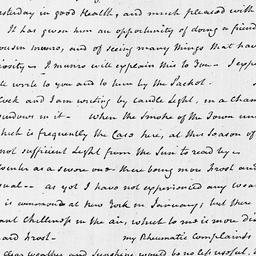 esterday in good Health, and much pleased with
It has given him an opportunity of doing a friend
ousin Munro, and of seeing many things that have
iosity - J Munro will explain this to You - I expe
ll write to you and to him by the Packet.
Clock and I am writing by Candle Light, in a Cham
indows in it - when the Smoke of the Town un
hich is frequently the Case here, at this Season of
not sufficient Light from the Sun to read by -
ber as a score one there being more Frost and
sual - as yet I have not experienced any wea
is common at New York in January; but there
ant Chillness in the air, which to me is more dis
and Frost - my Rheumatic Complaints
clear weather and Sunshine would be no less useful.